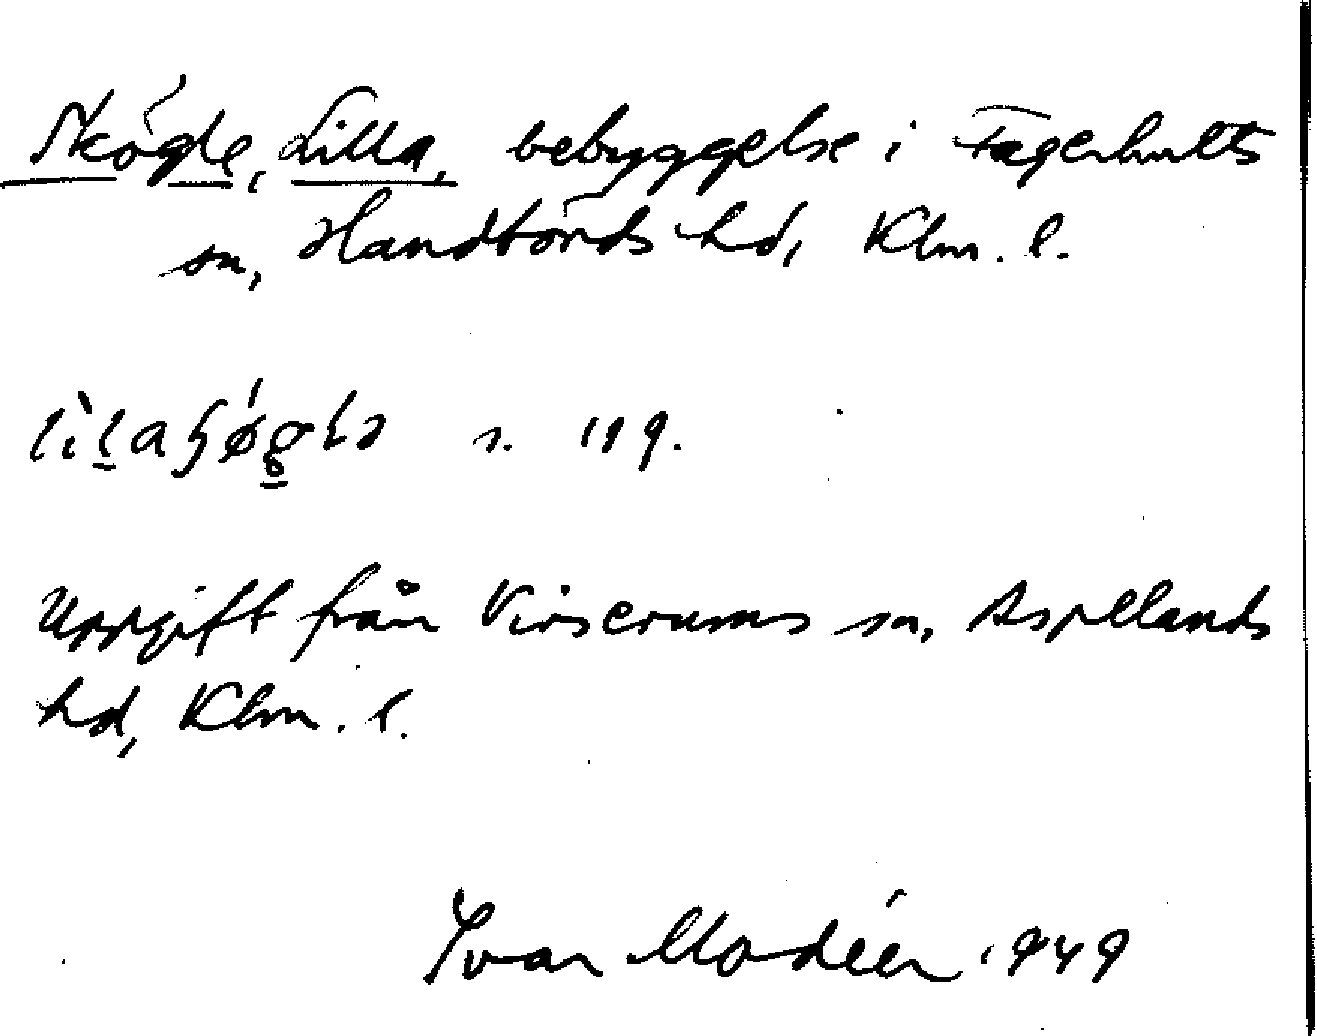 Skögle, Lilla, bebyggelse i Fagerhults
sn, Handbörds hd, Klm. l.
s. 119.
Uppgift från Virserums sn, Aspelands
hd, Klm. l.
Ivar Modéer 1949